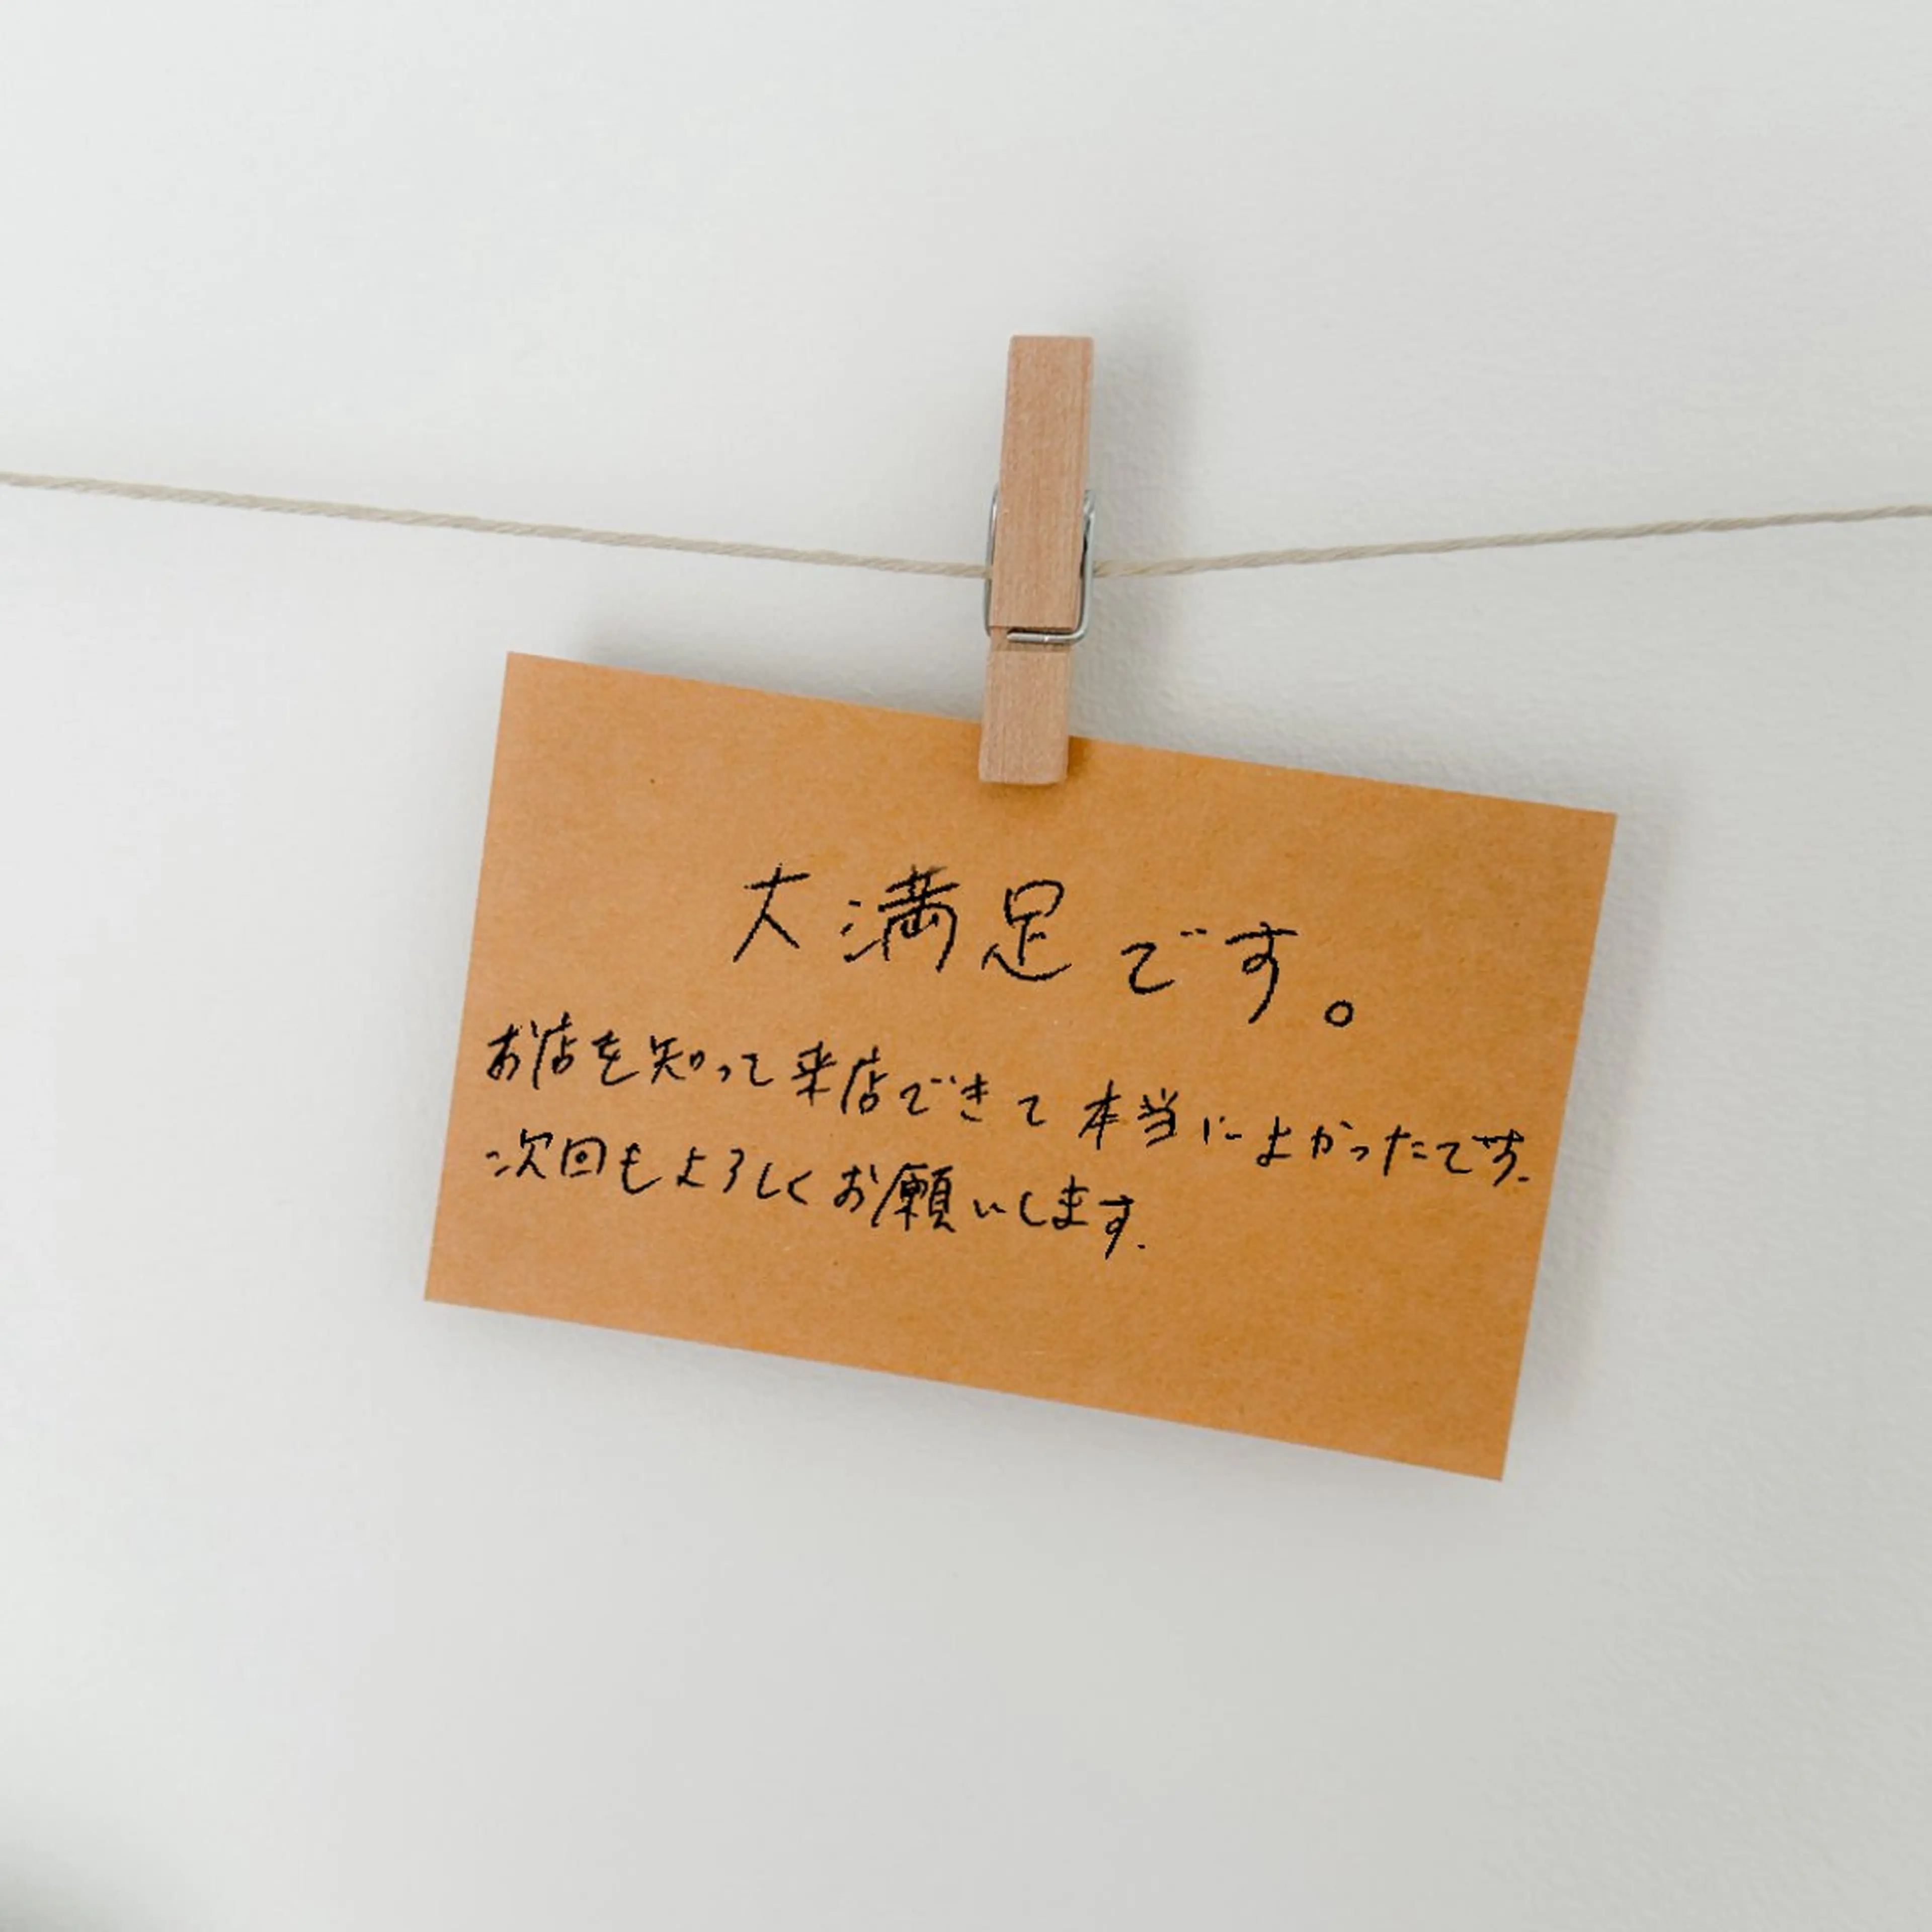 大満足です。
お店を知って来店できて本当によかったです.
次回もよろしくお願いします.